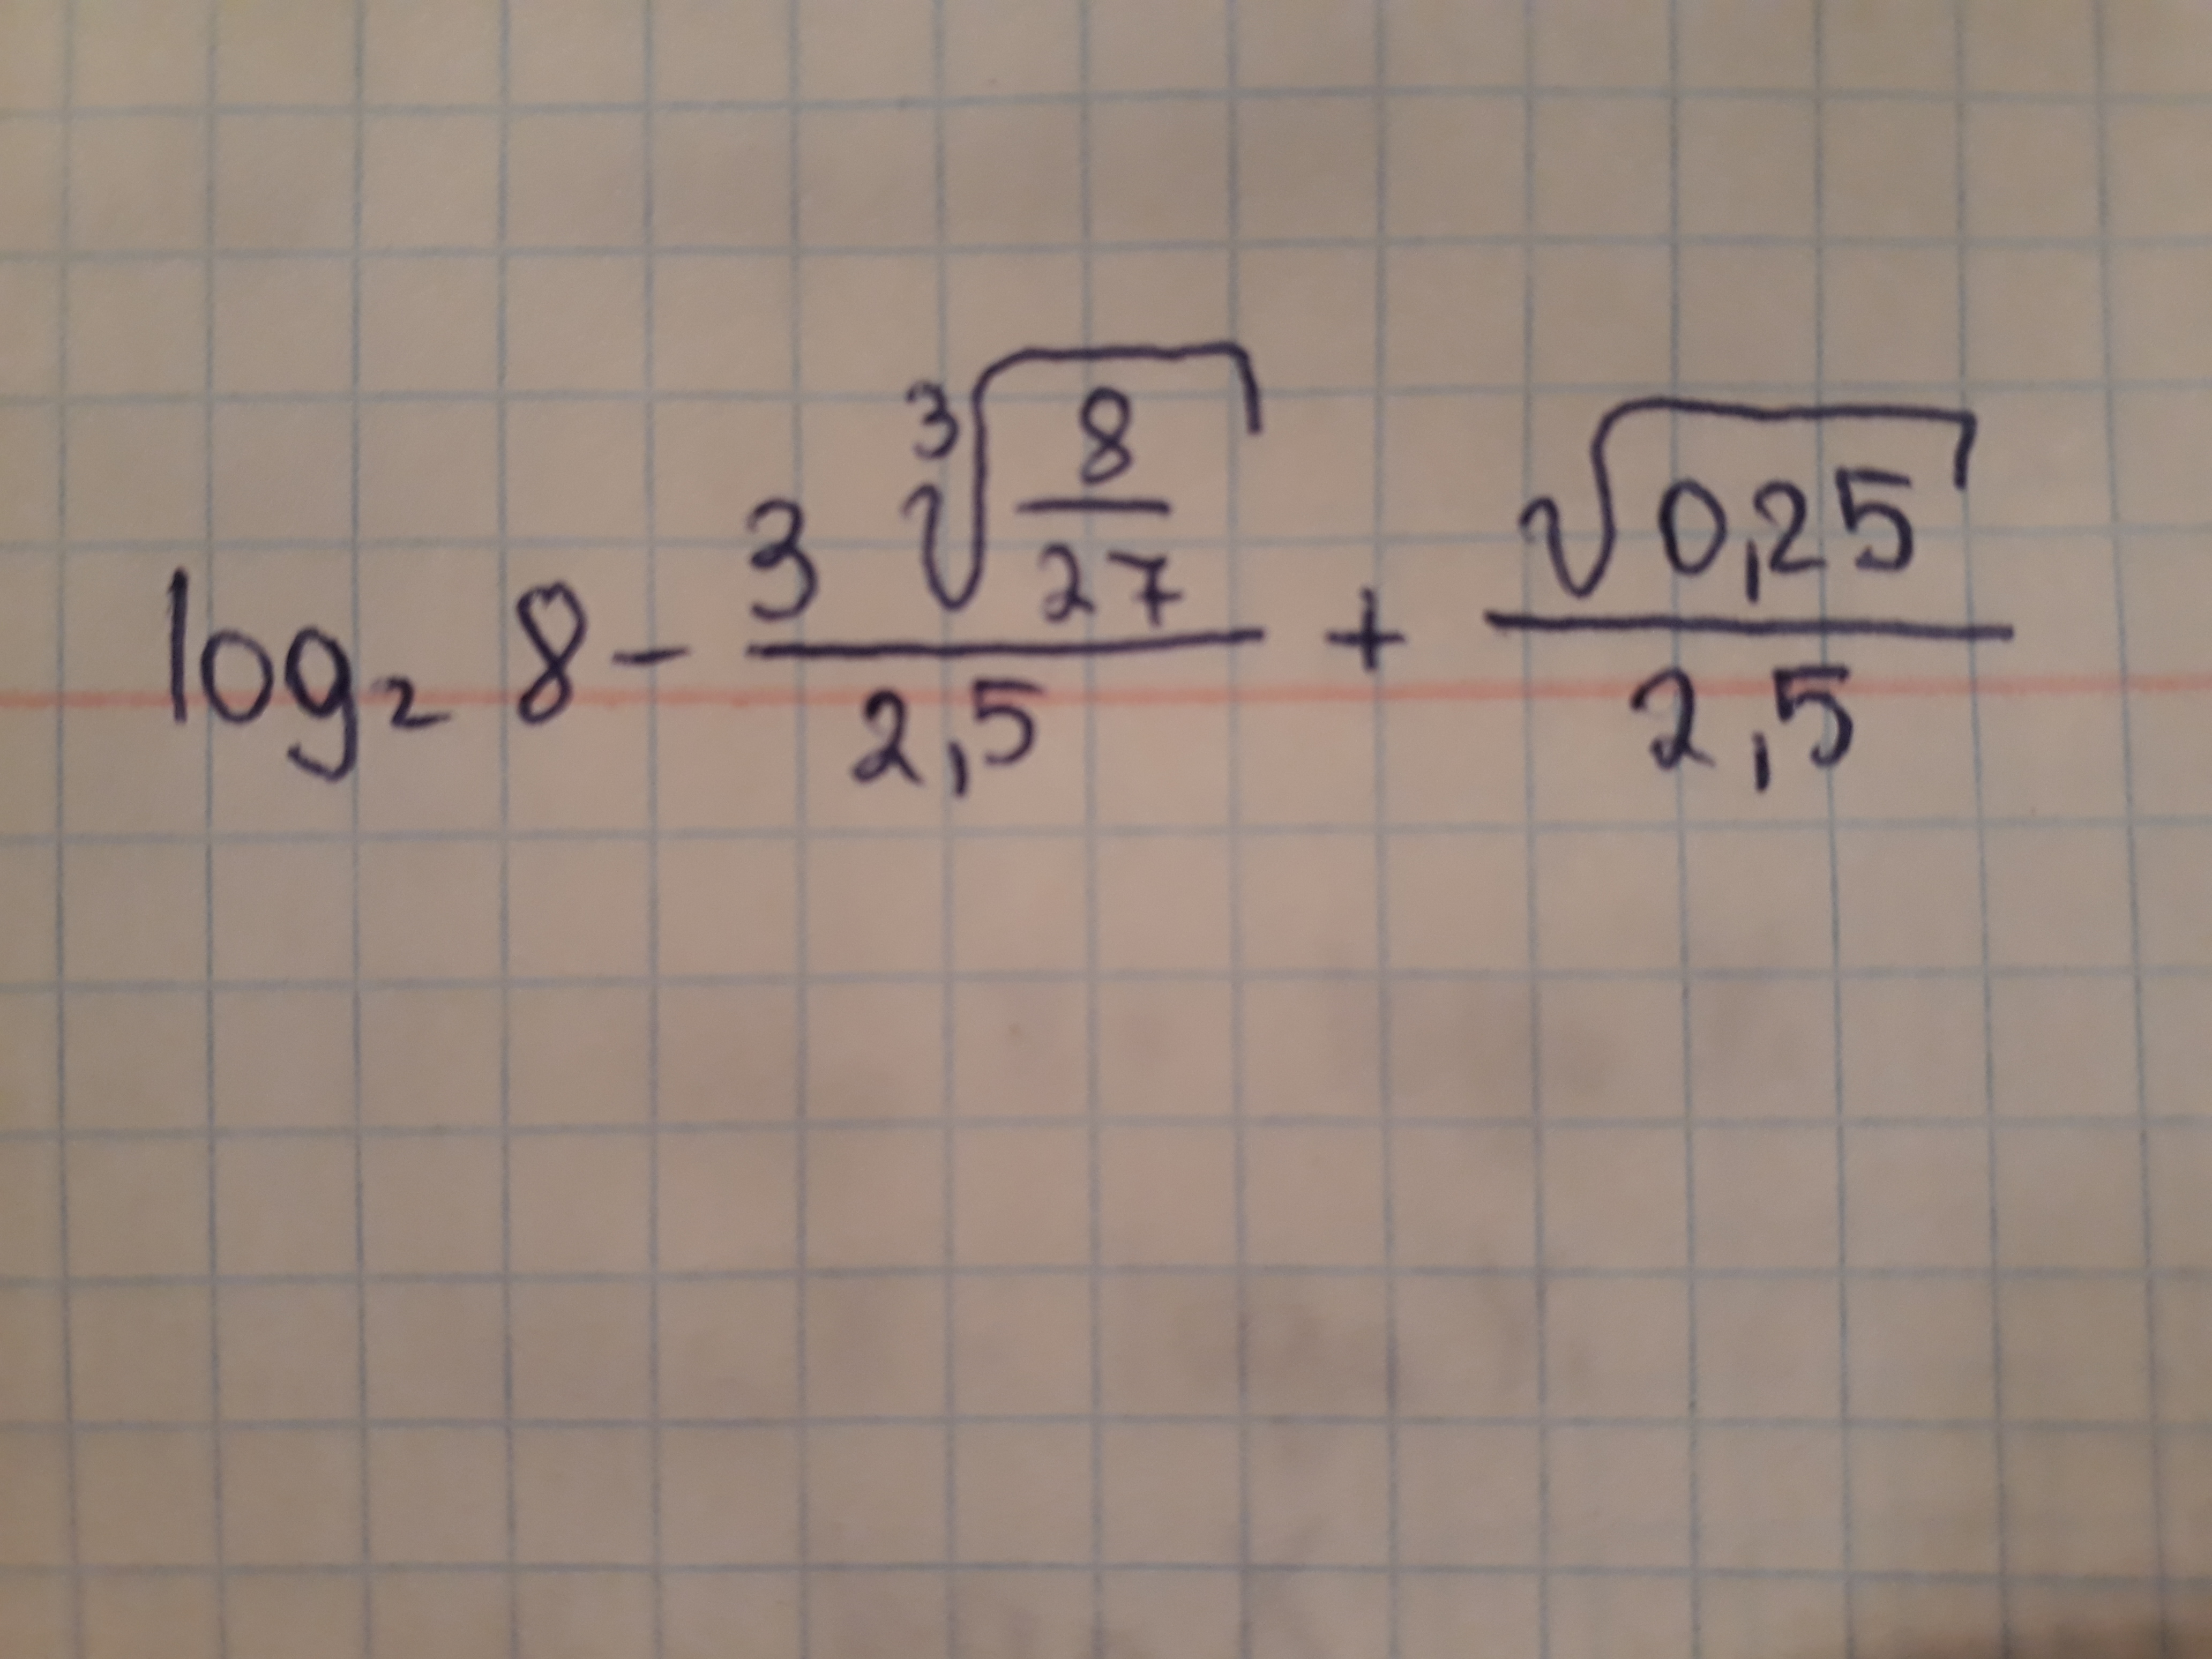 log₂ 8 - \frac{3 \sqrt[3]{\frac{8}{27}}}{2,5} + \frac{\sqrt{0,25}}{2,5}